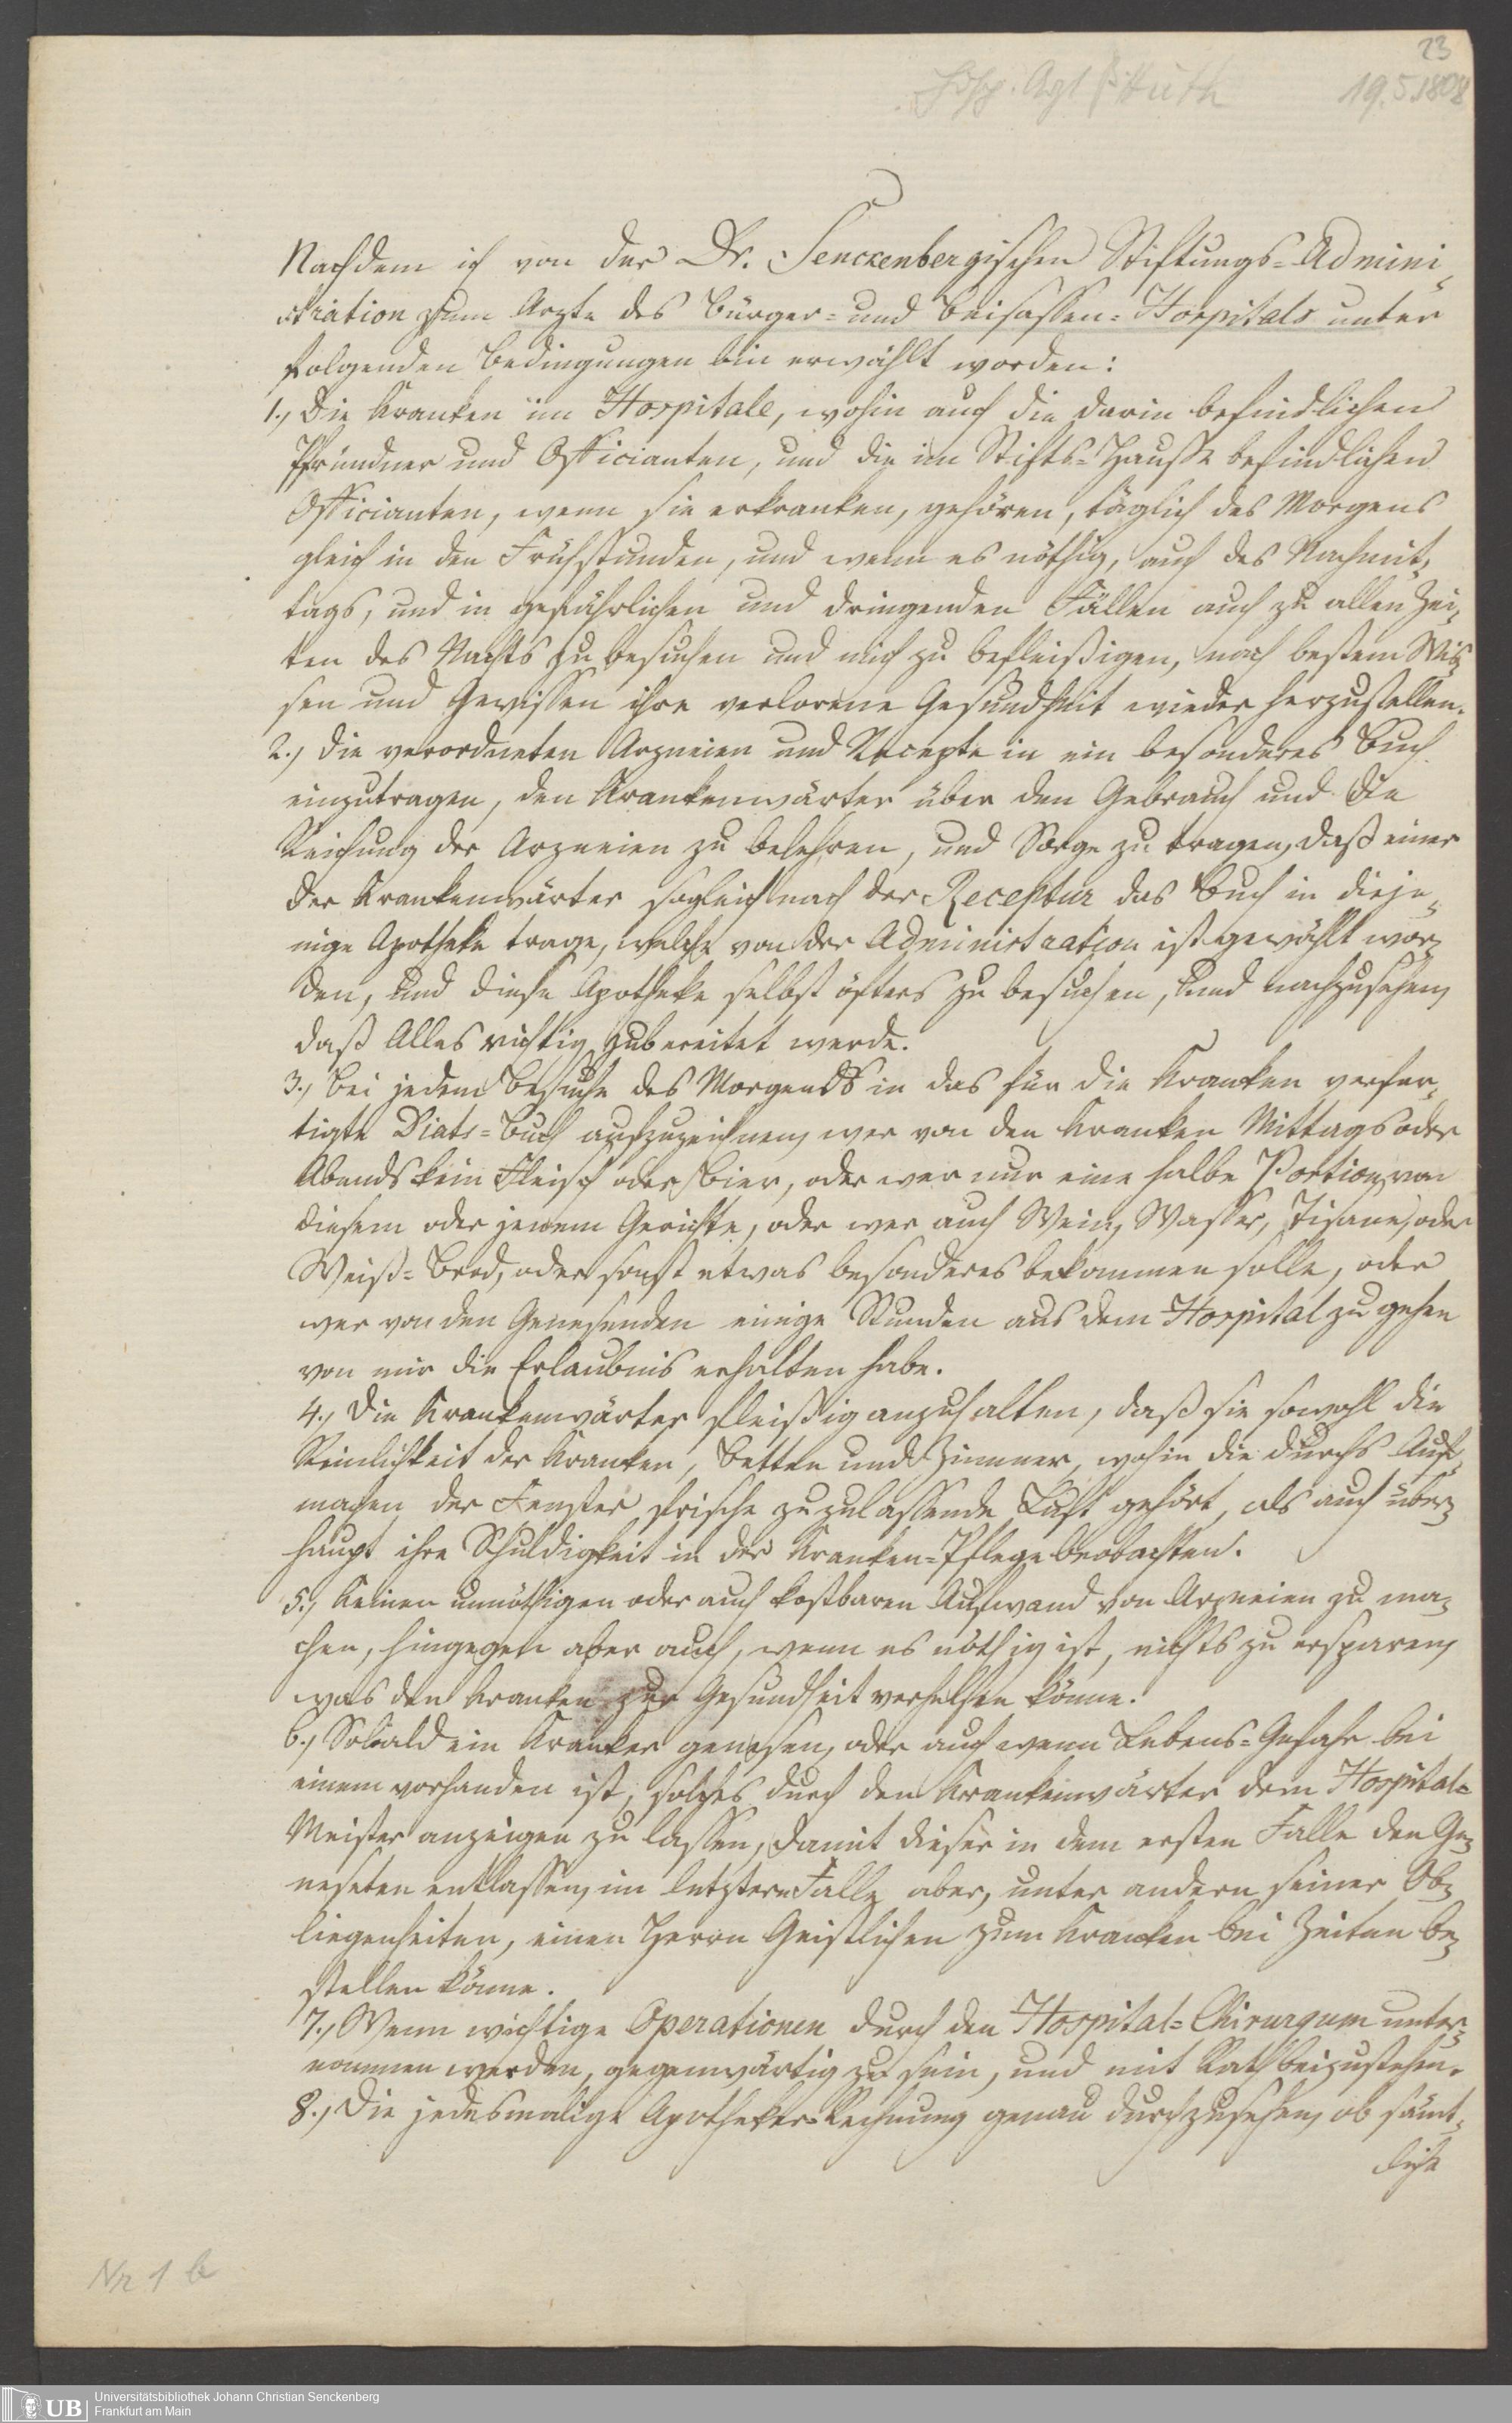 23
19.5.1808
Hosp. Arzt Huth
Nachdem ich von der Dr. Senckenbergischen Stiftungs-Admini-
stration zum Arzte des Bürger- und Beisassen-Hospitals unter
folgenden Bedingungen bin erwählt worden:
1., Die Kranken im Hospitale, wohin auch die darin befindlichen
Pfründner und Officianten, und die im Stifts-Hausse befindlichen
Officianten, wenn sie erkranken, gehören, täglich des Morgens
gleich in den Frühstunden, und wenn es nöthig, auch des Nachmit-
tags, und in gefährlichen und dringenden Fällen auch zu allen Zei-
ten des Nachts zu besuchen und mich zu befleißigen, nach bestem Wis-
sen und Gewissen ihre verlorene Gesundheit wieder herzustellen.
2., Die verordneten Arzneien und Recepte in ein besonderes Buch
einzutragen, den Krankenwärter über den Gebrauch und die
Reichung der Arzneien zu belehren, und Sorge zu tragen, daß einer
der Krankenwärter sogleich nach der Receptur das Buch in dieje-
nige Apotheke trage, welche von der Administration ist gewählt wor-
den, und diese Apotheke selbst öfters zu besuchen, und nachzusehen,
daß Alles richtig zubereitet werde.
3., Bei jedem Besuche des Morgends in das für die Kranken verfer-
tigte Diats-Buch aufzuzeichnen, wer von den Kranken Mittags oder
Abends kein Fleisch oder Bier, oder wer nur eine halbe Portion von
diesem oder jenem Gerichte, oder wer auch Wein, Wasser, Tisane, oder
Weiß-Brod, oder sonst etwas besonderes bekommen solle, oder
wer von den Genesenden einige Stunden aus dem Hospital zu gehen
von mir die Erlaubnis erhalten habe.
4., Die Krankenwärter fleißig anzuhalten, daß sie sowohl die
Reinlichkeit der Kranken, Betten und Zimmer, wohin die durchs Auf-
machen der Fenster frische zuzulassende Luft gehört, als auch über-
haupt ihre Schuldigkeit in der Kranken-Pflege beobachten.
5., Keinen unnöthigen oder auch kostbaren Aufwand von Arzneien zu ma-
chen, hingegen aber auch, wenn es nöthig ist, nichts zu ersparen,
was den Kranken zur Gesundheit verhelfen könne.
6., Sobald ein Kranker genesen, oder auch wenn Lebens-Gefahr bei
einem vorhanden ist, solches durch den Krankenwärter dem Hospital-
Meister anzeigen zu lassen, damit dieser in dem ersten Falle den Ge-
neseten entlassen, im letztern Falle aber, unter andern seiner Ob-
liegenheiten, einen Herrn Geistlichen zum Kranken bei Zeiten be-
stellen könne.
7., Wenn wichtige Operationen durch den Hospital-Chirurgum unter-
nommen werden, gegenwärtig zu sein, und mit Rath beizustehen.
8., Die jedesmalige Apotheker-Rechnung genau durchzusehen, ob sämt-
liche
Nr 1 b
UB Universitätsbibliothek Johann Christian Senckenberg
Frankfurt am Main